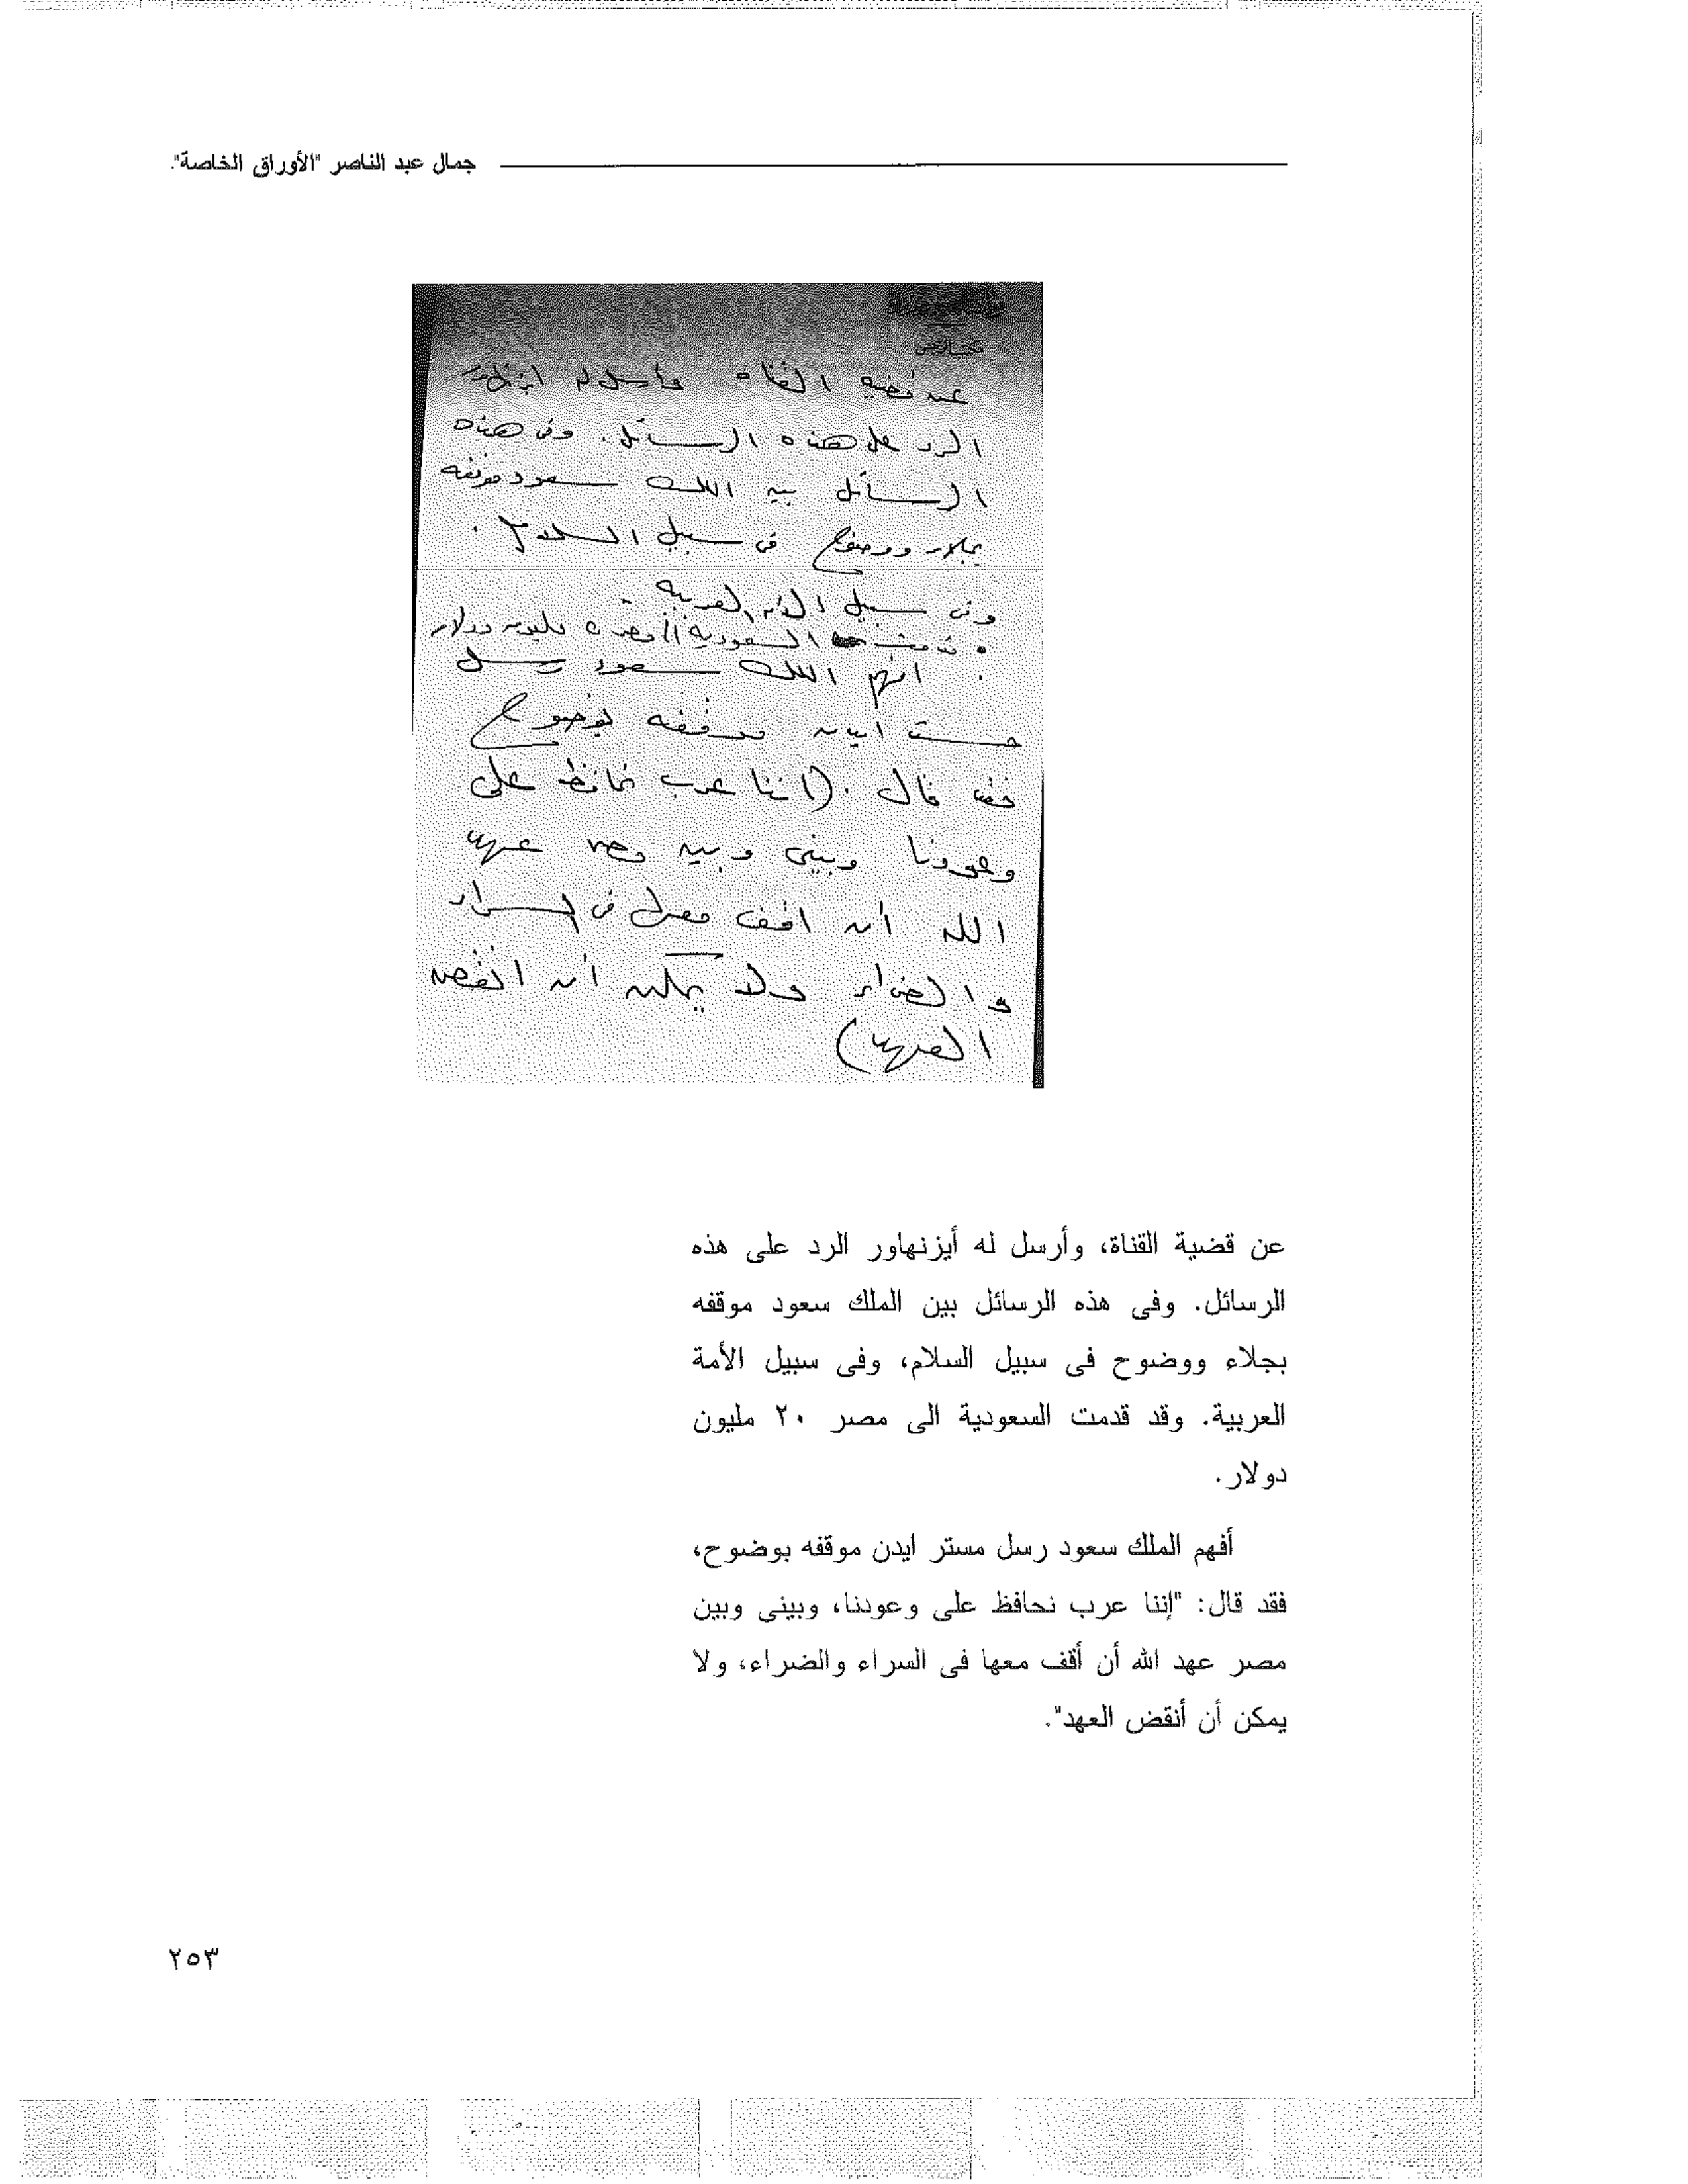 جمال عبد الناصر "الأوراق الخاصة".
مكتب الرئيس
عن قضيه القناه وأرسل له ايزنهاور
الرد على هذه الرسائل. وفى هذه
الرسائل بين الملك سعود موقفه
بجلاء ووضوح فى سبيل السلام.
وفى سبيل الأمه العربيه.
السعودية الى مصر مليون دولار
افهم الملك سعود رسل
مستر ايدن موقفه بوضوح
فقد قال. (اننا عرب نحافظ على
وعودنا وبينى وبين مصر عهد
الله أن اقف معها فى السراء
والضراء ولا يمكن أن انقض
العهد)
عن قضية القناة، وأرسل له أيزنهاور الرد على هذه
الرسائل. وفى هذه الرسائل بين الملك سعود موقفه
بجلاء ووضوح فى سبيل السلام، وفى سبيل الأمة
العربية. وقد قدمت السعودية الى مصر ٢٠ مليون
دولار.
أفهم الملك سعود رسل مستر ايدن موقفه بوضوح،
فقد قال: "إننا عرب نحافظ على وعودنا، وبينى وبين
مصر عهد الله أن أقف معها فى السراء والضراء، ولا
يمكن أن أنقض العهد".
٢٥٣